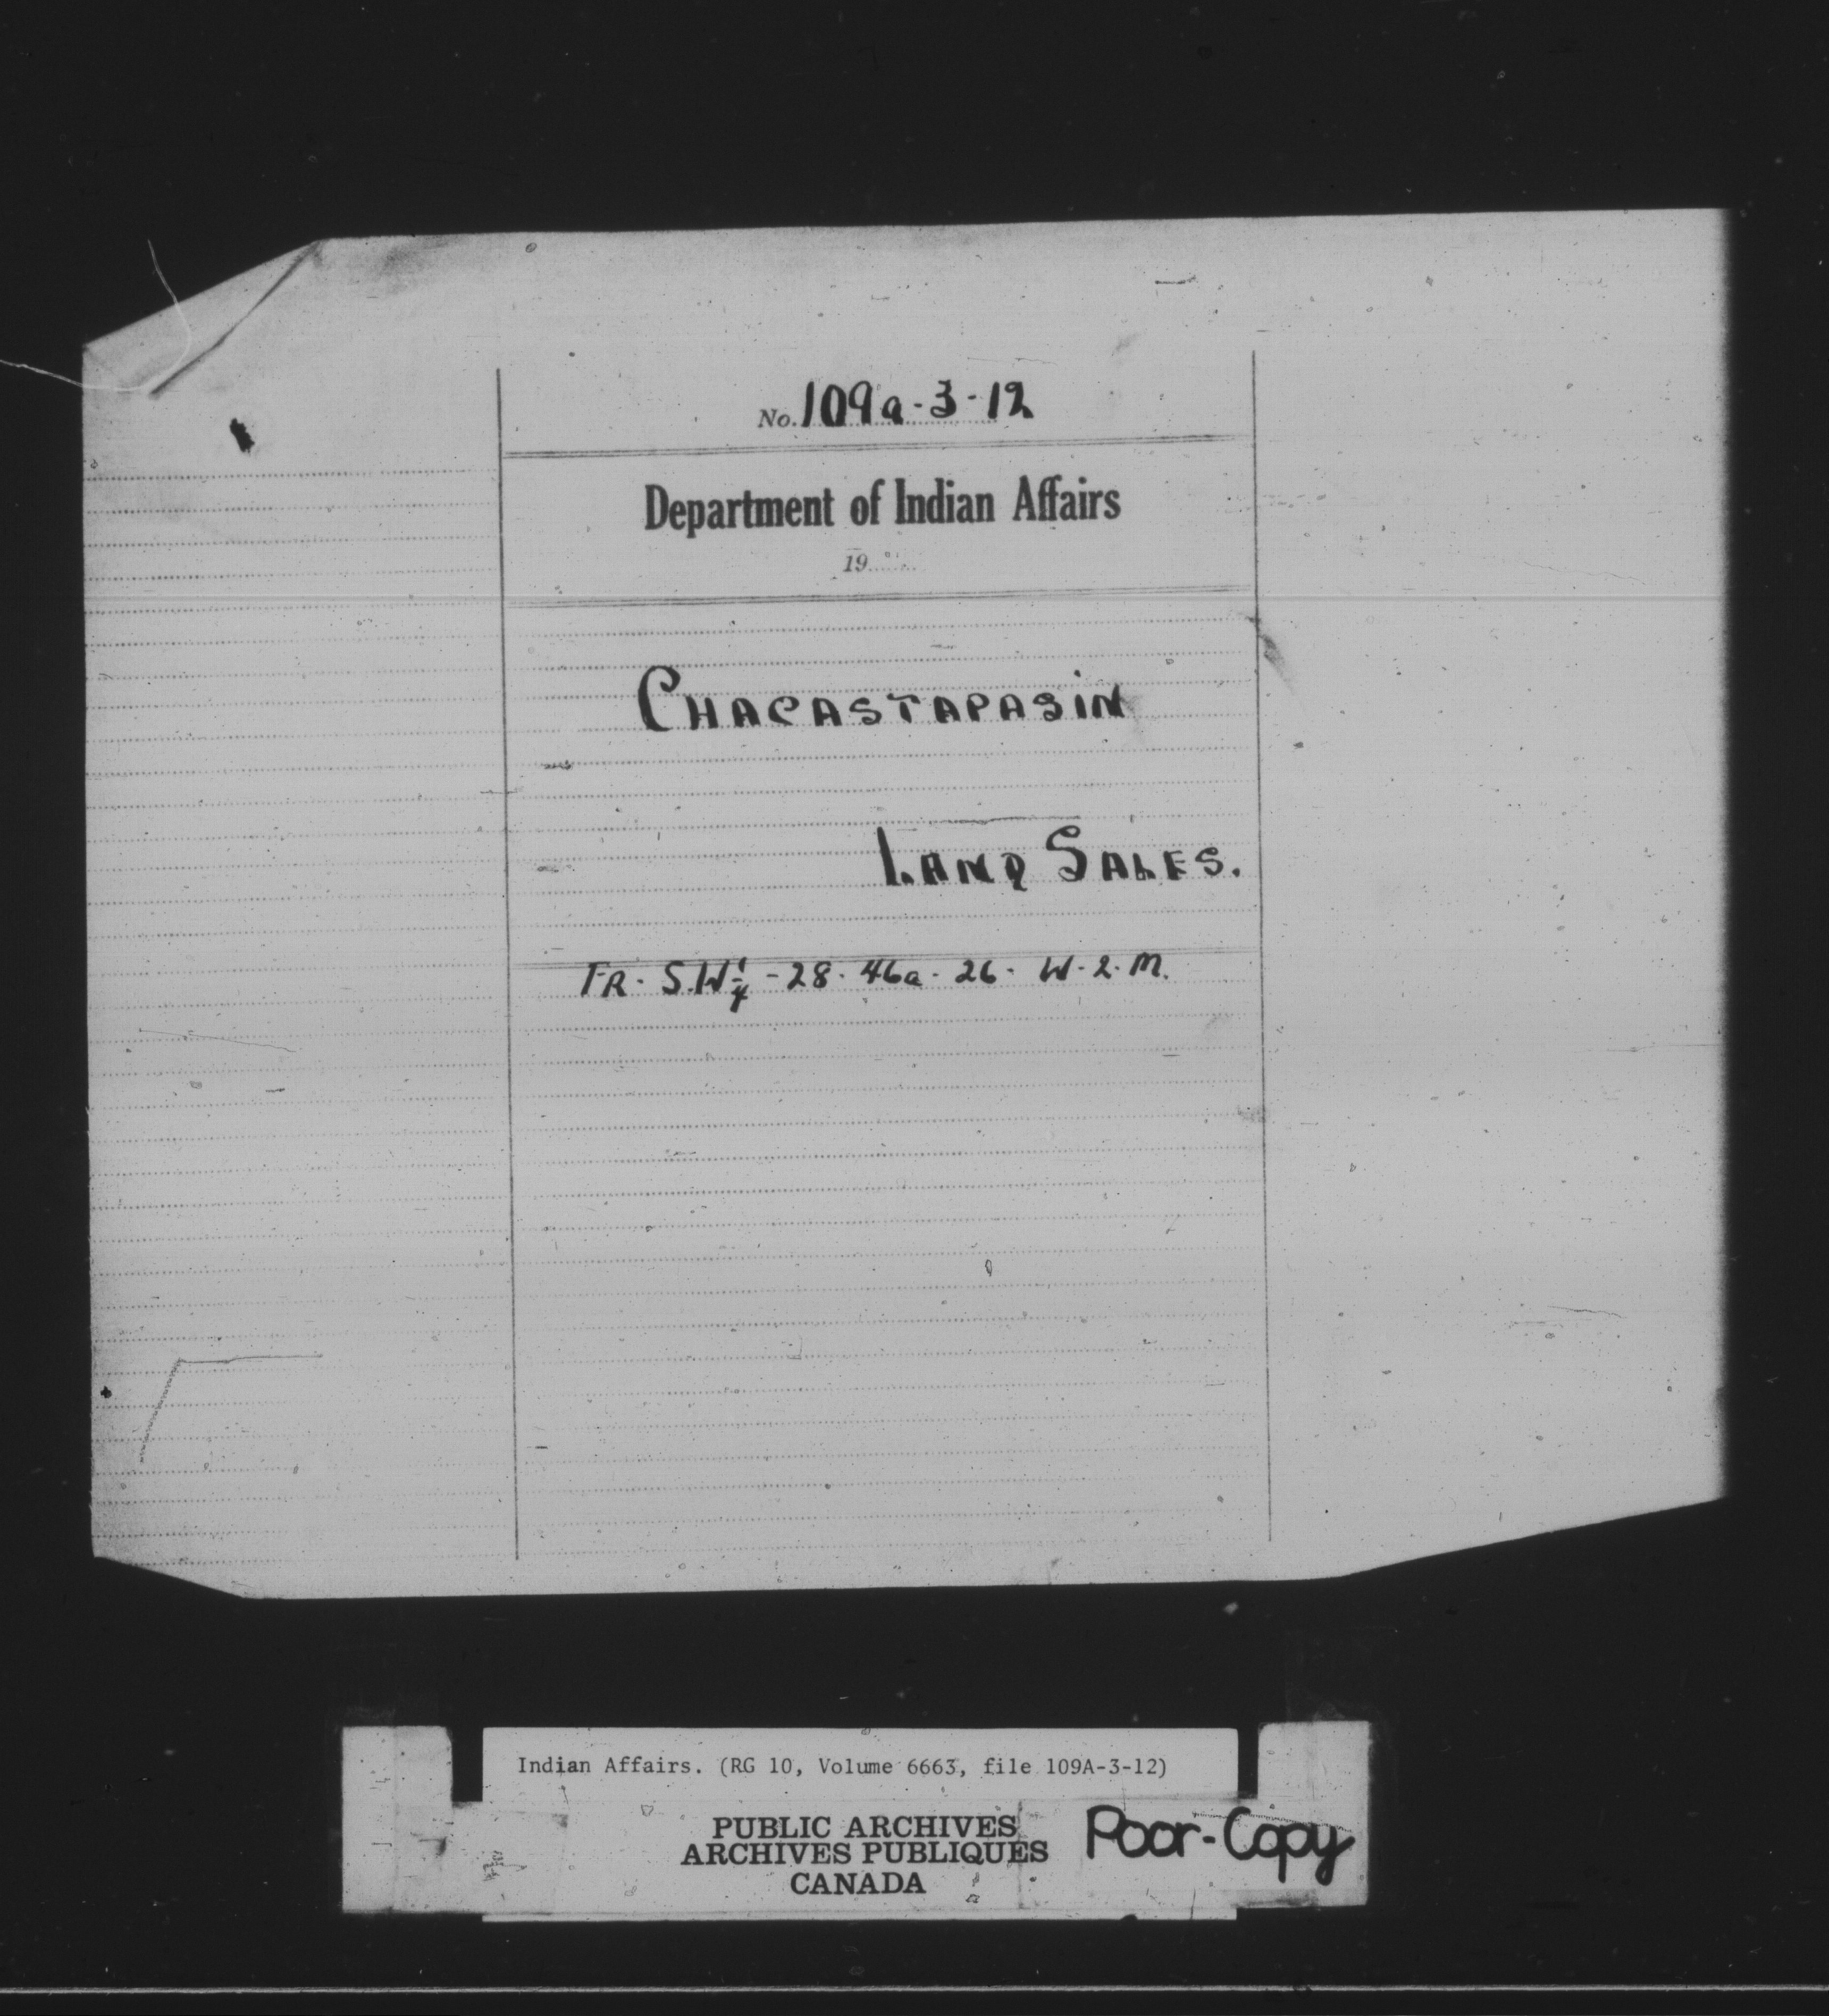 No. 109a-3-12
Department of Indian Affairs
19
CHACASTAPASIN
LAND SALES.
FR. S.W¼ - 28. 46a. 26. W. 2. M.
Indian Affairs. (RG 10, Volume 6663, file 109A-3-12)
PUBLIC ARCHIVES
ARCHIVES PUBLIQUES
CANADA
Poor-Copy